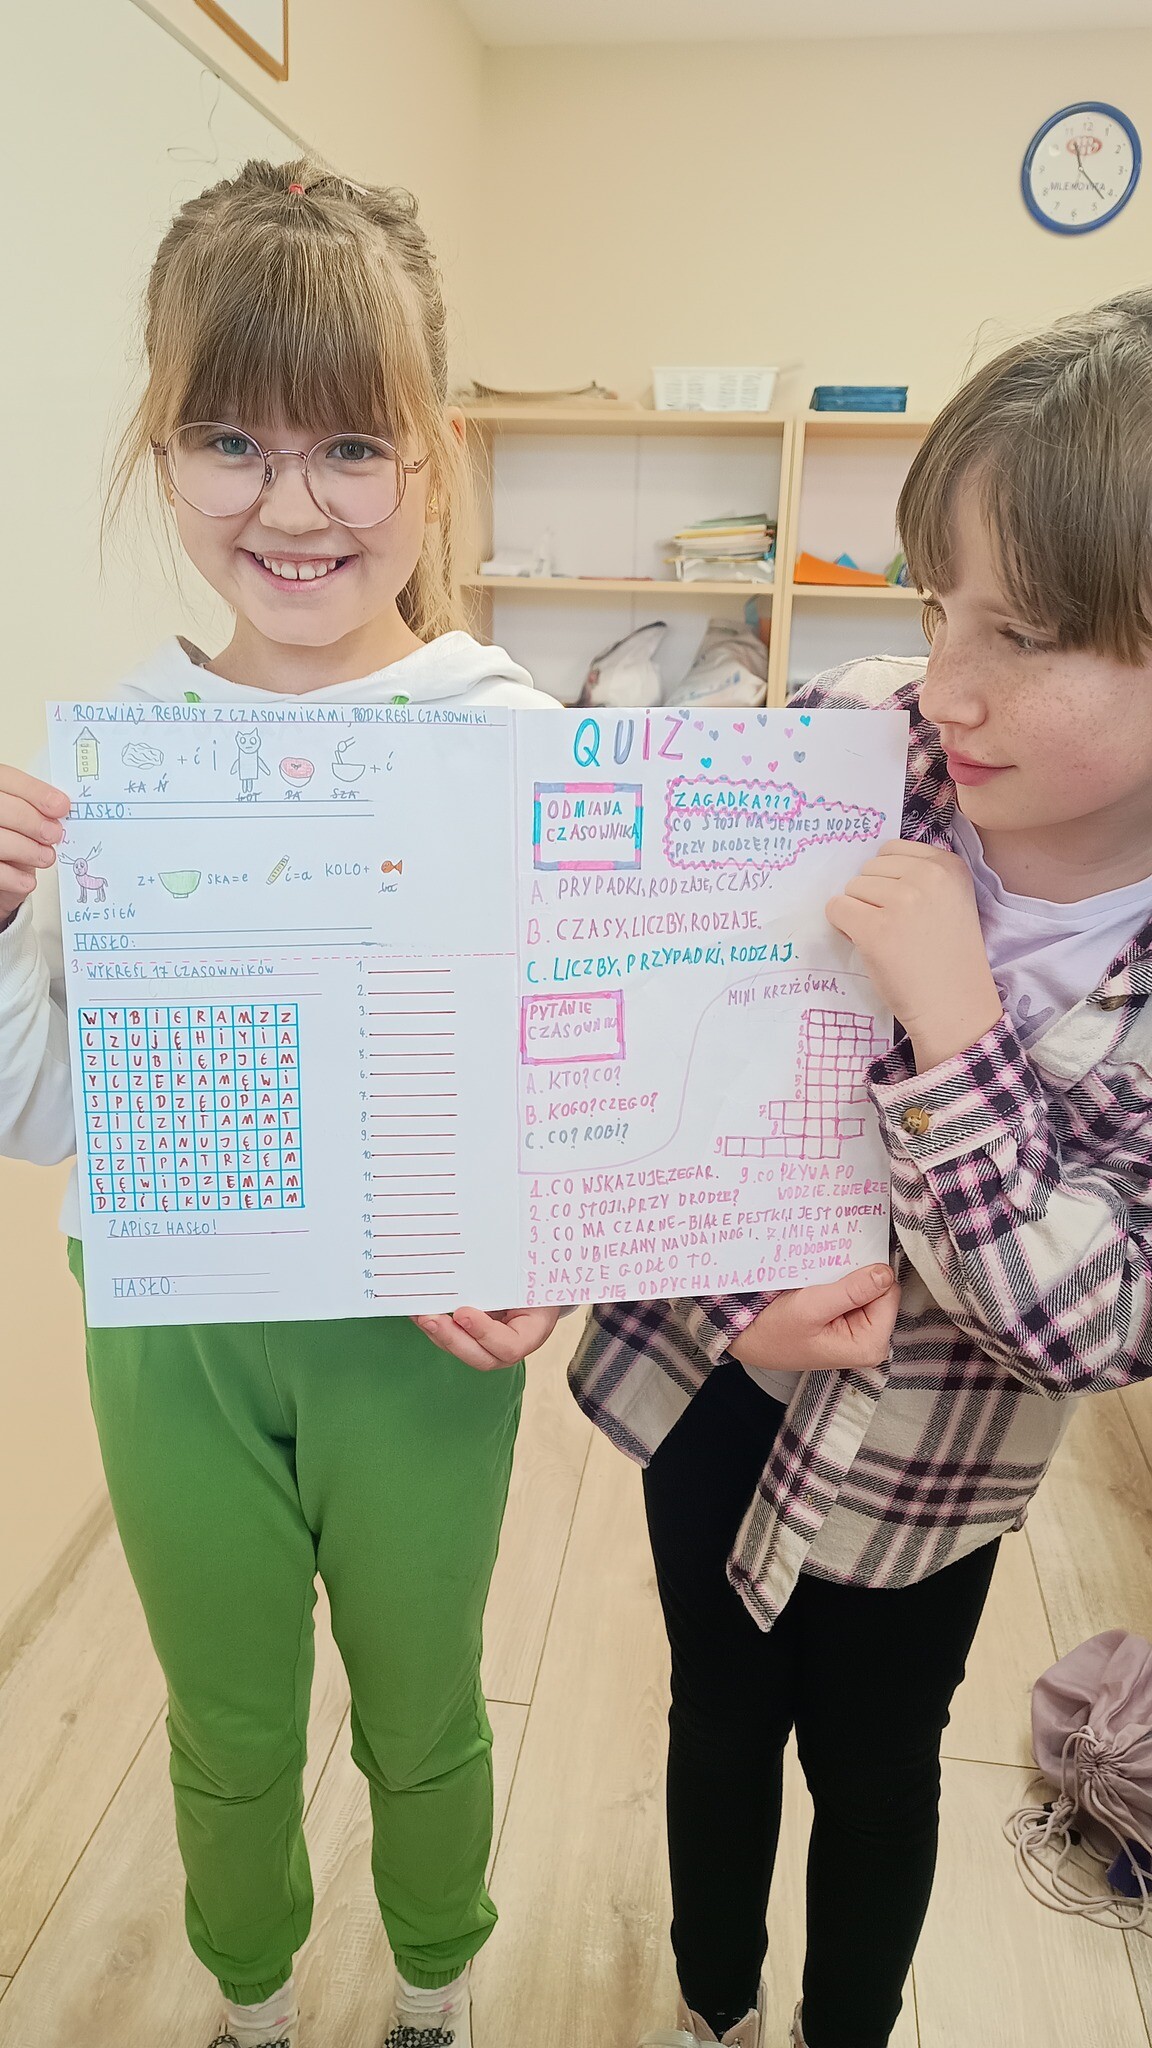 1. ROZWIĄŻ REBUSY Z CZASOWNIKAMI, PODKREŚL CZASOWNIKI
+ ć i + ć
Ł KA Ń KOT PA SZA
HASŁO:
2.
Z+ SKA=E i=a KOLO+
LEŃ=SIEŃ ba
HASŁO:
3. WYKREŚL 17 CZASOWNIKÓW
W Y B I E R A M Z Z
C Z U J Ę H I Y I A
Z L U B I Ę P J E M
Y C Z E K A M Ę W I
S P Ę D Z Ę O P A A
Z I C Z Y T A M M T
C S Z A N U J Ę O A
Z Z T P A T R Z Ę M
Ę Ę W I D Z E M A M
D Z I Ę K U J Ę A M
ZAPISZ HASŁO!
HASŁO:
1.
2.
3.
4.
5.
6.
7.
8.
9.
10.
11.
12.
13.
14.
15.
16.
17.
QUIZ
ODMIANA
CZASOWNIKA
ZAGADKA???
CO STOJI NA JEDNEJ NODZE
PRZY DRODZE?!?!
A. PRYPADKI, RODZAJE, CZASY.
B. CZASY, LICZBY, RODZAJE.
C. LICZBY, PRZYPADKI, RODZAJ.
PYTANIE
CZASOWNIKA
A. KTO? CO?
B. KOGO? CZEGO?
C. CO? ROBI?
MINI KRZYŻÓWKA.
1
2
3
4
5
6
7
8
9
1. CO WSKAZUJE ZEGAR.
2. CO STOJI, PRZY DRODZE?
3. CO MA CZARNE-BIAŁE PESTKI, I JEST OWOCEM.
4. CO UBIERAMY NA UDA I NOGI.
5. NASZE GODŁO TO.
6. CZYM SIĘ ODPYCHA NA ŁÓDCE.
7. IMIĘ NA N.
8. PODOBNE DO
SZNURA.
9. CO PŁYWA PO
WODZIE. ZWIERZE
12
1
2
3
4
5
6
7
8
11
MLEKOVITA